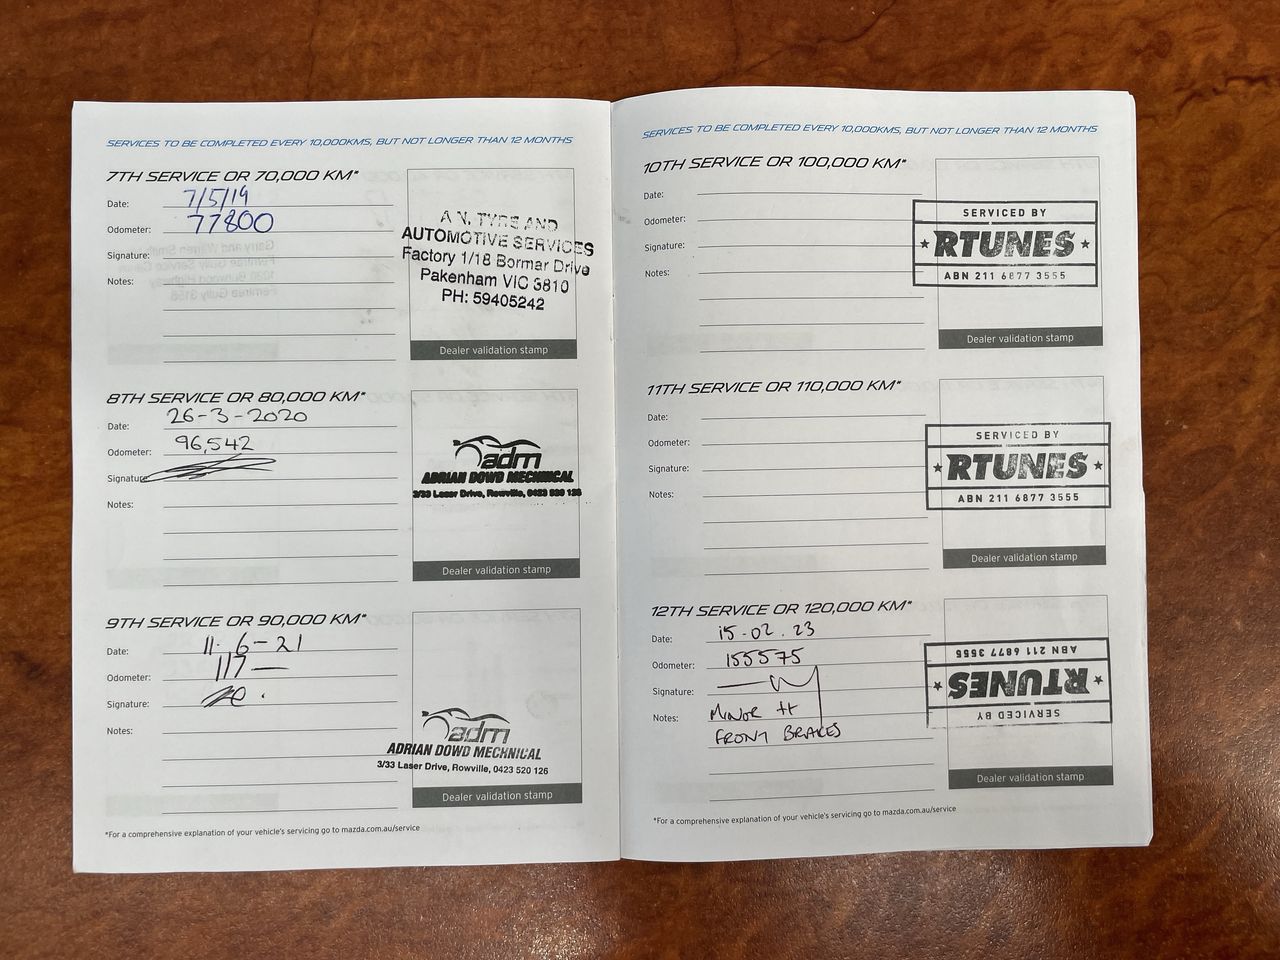 SERVICES TO BE COMPLETED EVERY 10,000KMS, BUT NOT LONGER THAN 12 MONTHS
7TH SERVICE OR 70,000 KM*
Date: 7/5/19
Odometer: 77800
Signature:
Notes:
A.N. TYRE AND
AUTOMOTIVE SERVICES
Factory 1/18 Bormar Drive
Pakenham VIC 3810
PH: 59405242
Dealer validation stamp
8TH SERVICE OR 80,000 KM*
Date: 26-3-2020
Odometer: 96,542
Signature:
Notes:
adm
ADRIAN DOWD MECHNICAL
3/33 Laser Drive, Rowville, 0423 520 126
Dealer validation stamp
9TH SERVICE OR 90,000 KM*
Date: 11-6-21
Odometer: 117 —
Signature:
Notes:
adm
ADRIAN DOWD MECHNICAL
3/33 Laser Drive, Rowville, 0423 520 126
Dealer validation stamp
*For a comprehensive explanation of your vehicle's servicing go to mazda.com.au/service
SERVICES TO BE COMPLETED EVERY 10,000KMS, BUT NOT LONGER THAN 12 MONTHS
10TH SERVICE OR 100,000 KM*
Date:
Odometer:
Signature:
Notes:
SERVICED BY
RTUNES
ABN 211 6877 3555
Dealer validation stamp
11TH SERVICE OR 110,000 KM*
Date:
Odometer:
Signature:
Notes:
SERVICED BY
RTUNES
ABN 211 6877 3555
Dealer validation stamp
12TH SERVICE OR 120,000 KM*
Date: 15-02.23
Odometer: 155575
Signature:
Notes: MINOR ++
FRONT BRAKES
SERVICED BY
RTUNES
ABN 211 6877 3555
Dealer validation stamp
*For a comprehensive explanation of your vehicle's servicing go to mazda.com.au/service